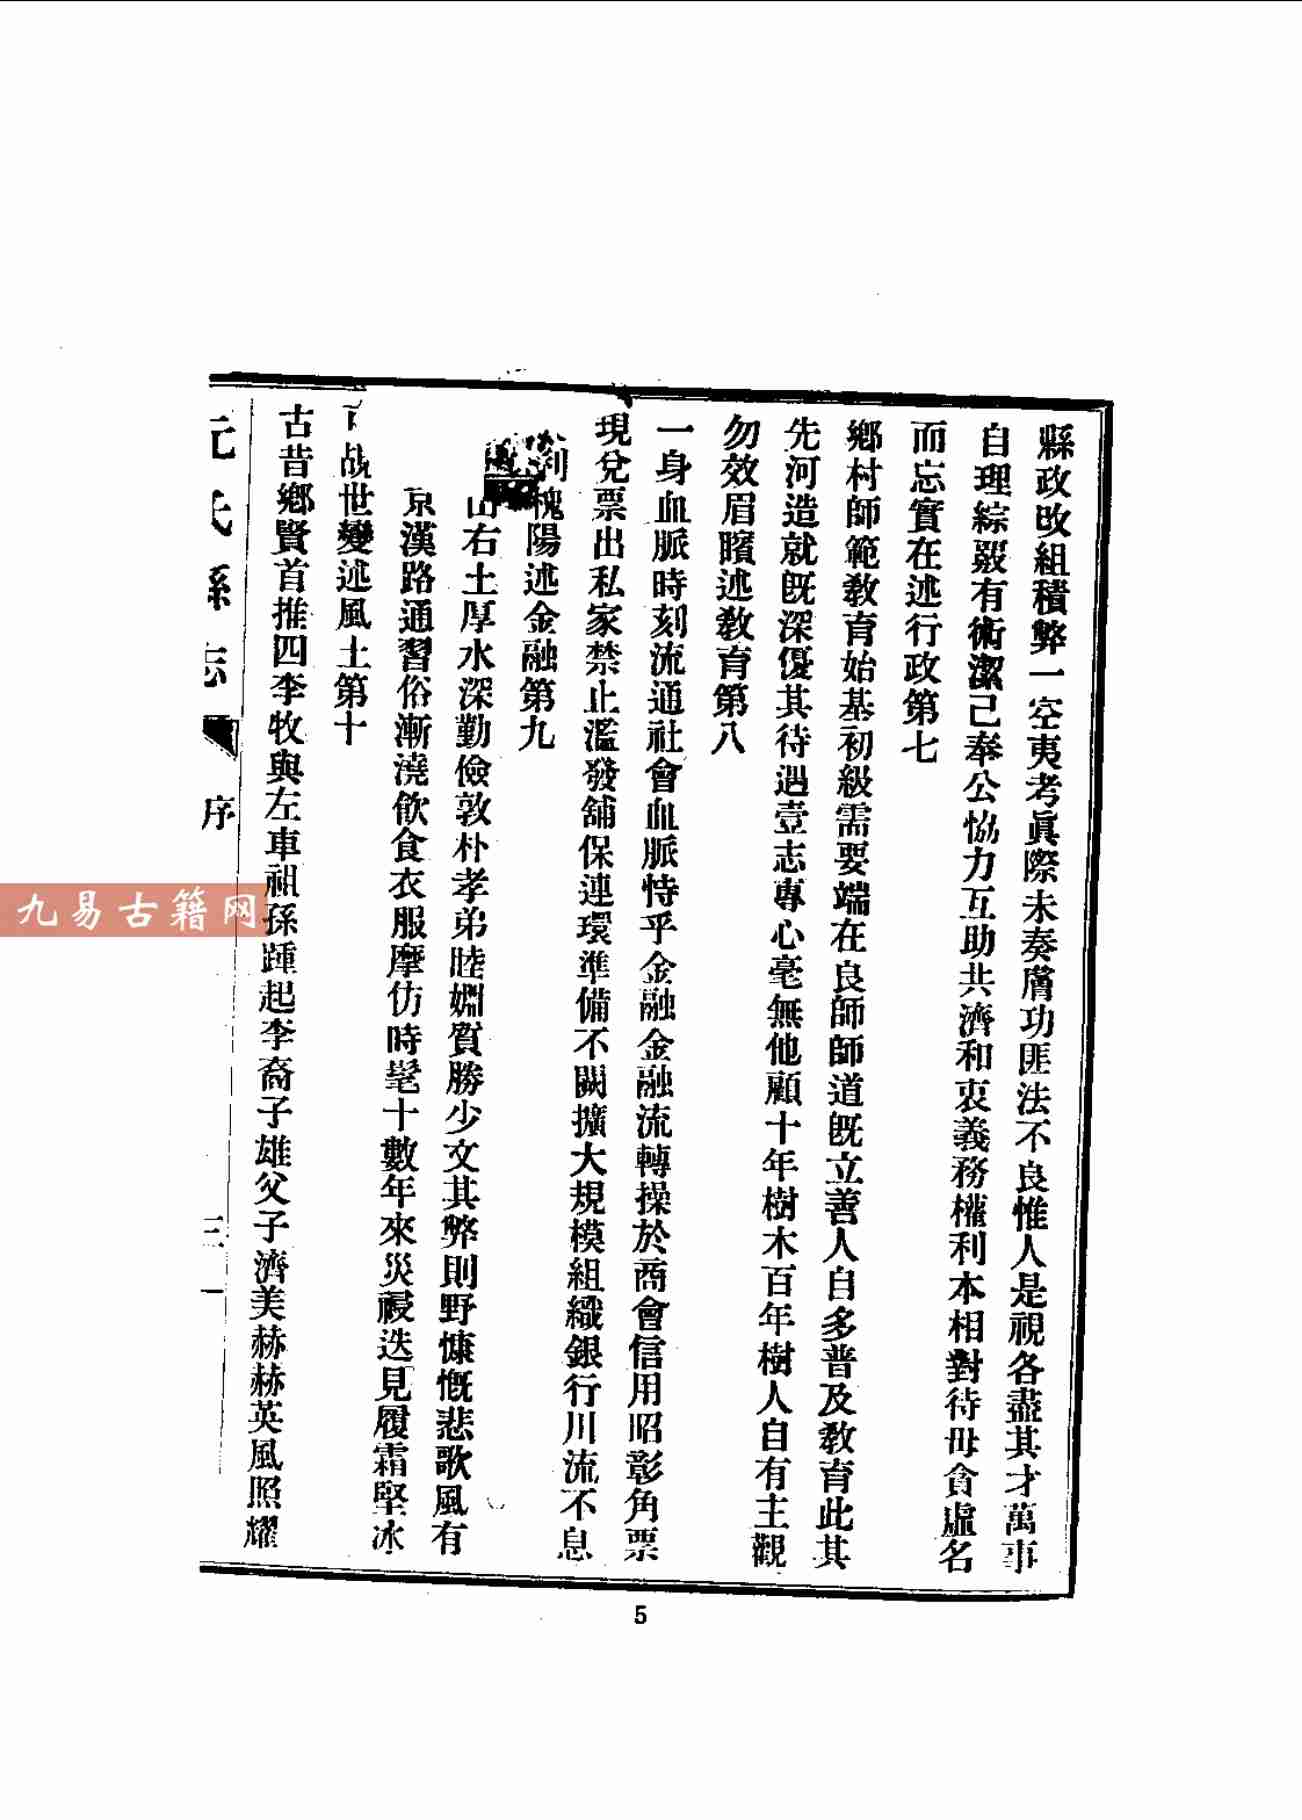 縣政改組積弊一空夷考眞際未奏膚功匪法不良惟人是視各盡其才萬事
自理綜覈有術潔己奉公協力互助共濟和衷義務權利本相對待毋貪虛名
而忘實在述行政第七
鄉村師範敎育始基初級需要端在良師師道旣立善人自多普及敎育此其
先河造就旣深優其待遇壹志專心毫無他顧十年樹木百年樹人自有主觀
勿效眉矉述敎育第八
一身血脈時刻流通社會血脈恃乎金融金融流轉操於商會信用昭彰角票
現兌票出私家禁止濫發舖保連環準備不闕擴大規模組織銀行川流不息
槐陽述金融第九
山右土厚水深勤儉敦朴孝弟睦婣質勝少文其弊則野慷慨悲歌風有
京漢路通習俗漸澆飮食衣服摩仿時髦十數年來災祲迭見履霜堅冰
世變述風土第十
古昔鄉賢首推四李牧與左車祖孫踵起李裔子雄父子濟美赫赫英風照耀
元氏縣志 序 三一
九易古籍网
5